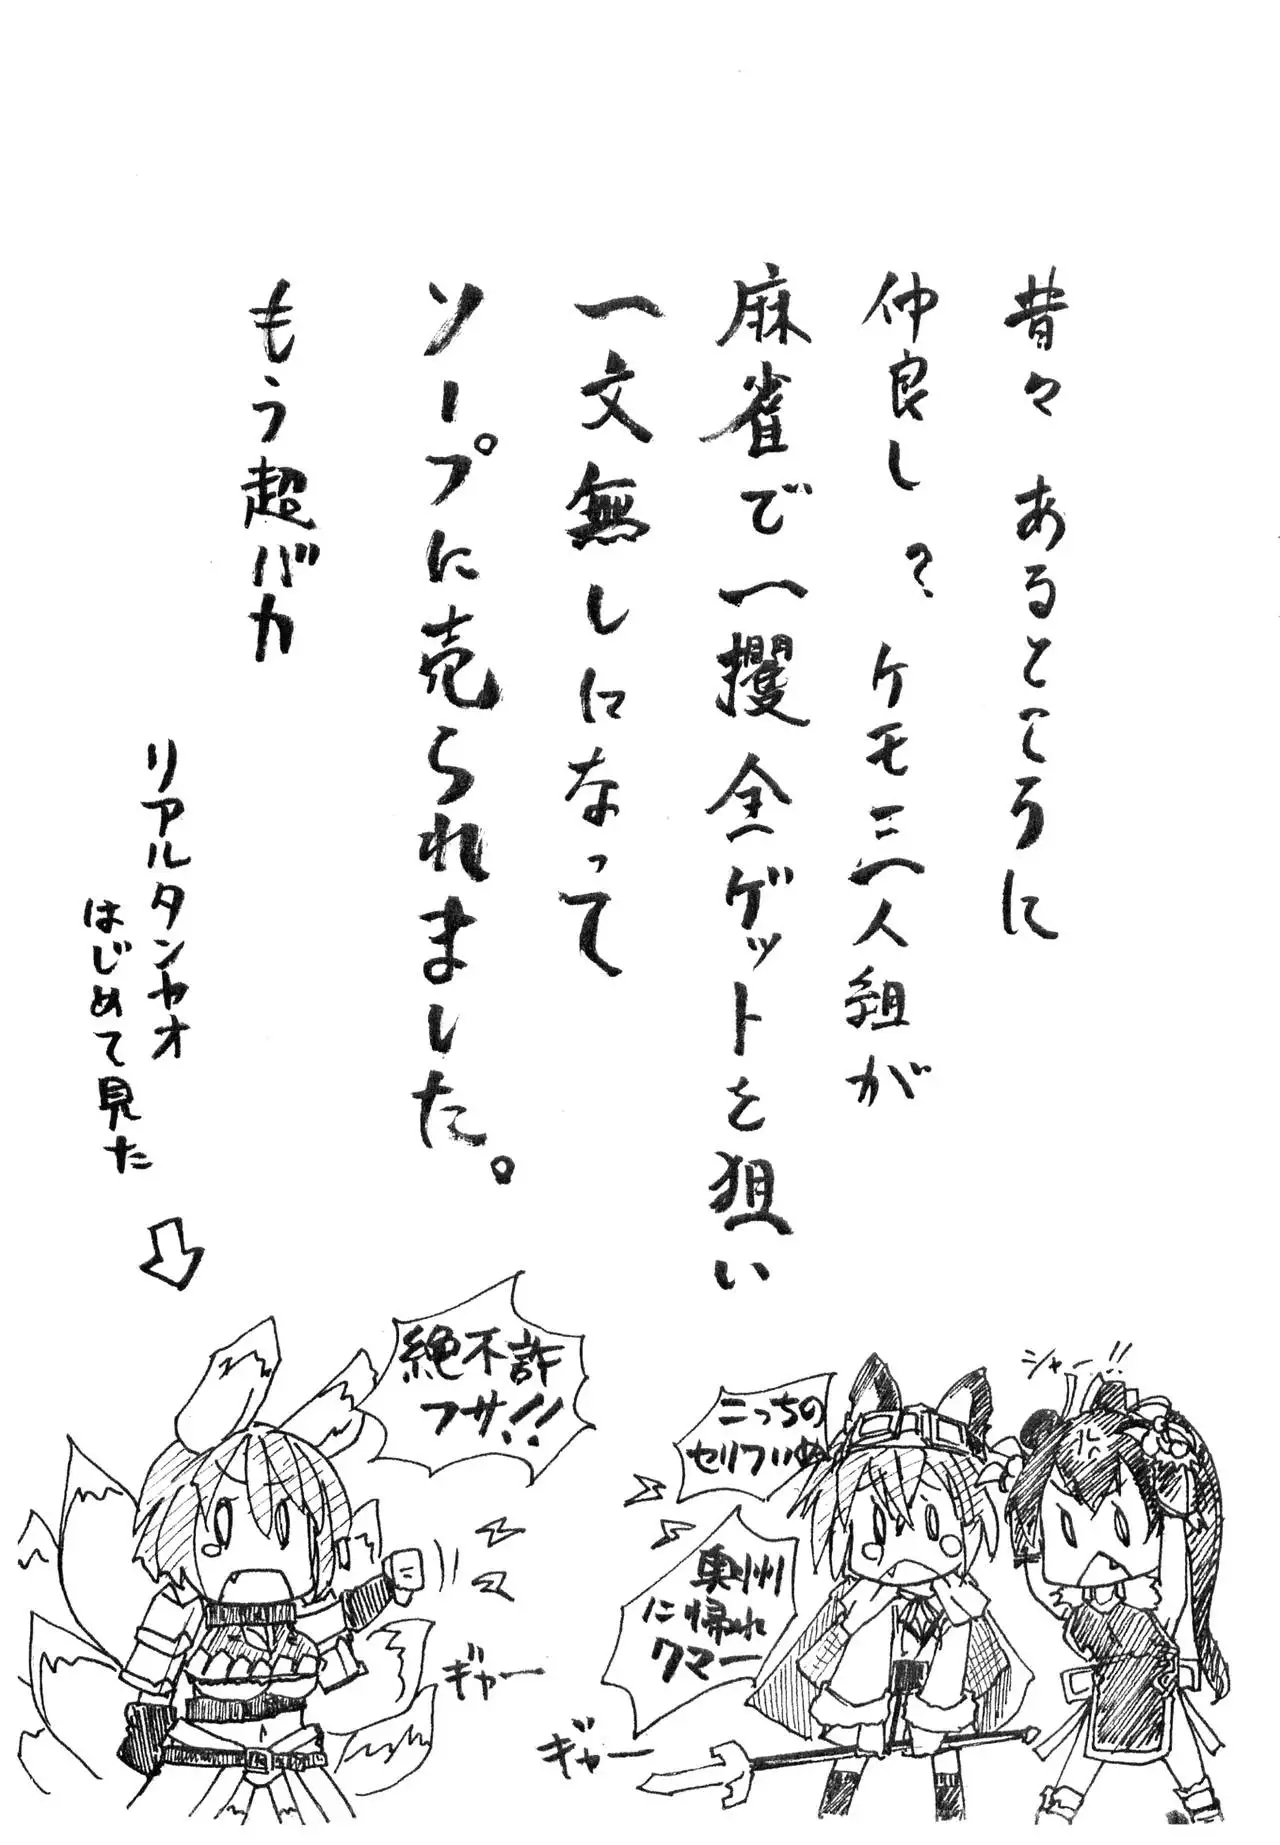 昔々 あるところに
仲良し？ケモ三人組が
麻雀で一攫金ゲットを狙い
一文無しになって
ソープに売られました。
もう超バカ
リアルタンヤオ
はじめて見た
シャー!!
こっちの
セリフいぬ
奥州
に帰れ
クマー
ギャー
絶不許
フサ!!
ギャー